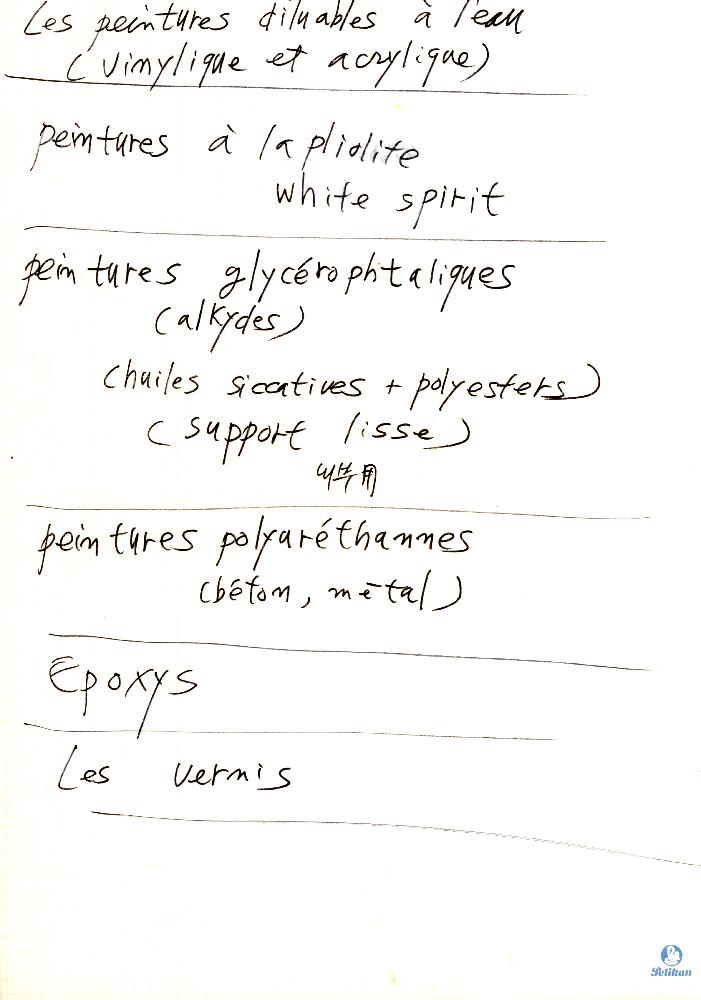 Les peintures diluables à l'eau
(vinylique et acrylique)
peintures à la pliolite
white spirit
peintures glycérophtaliques
(alkydes)
(huiles siccatives + polyesters)
(support lisse)
내부用
peintures polyuréthannes
(béton, métal)
Epoxys
Les vernis
Pelikan